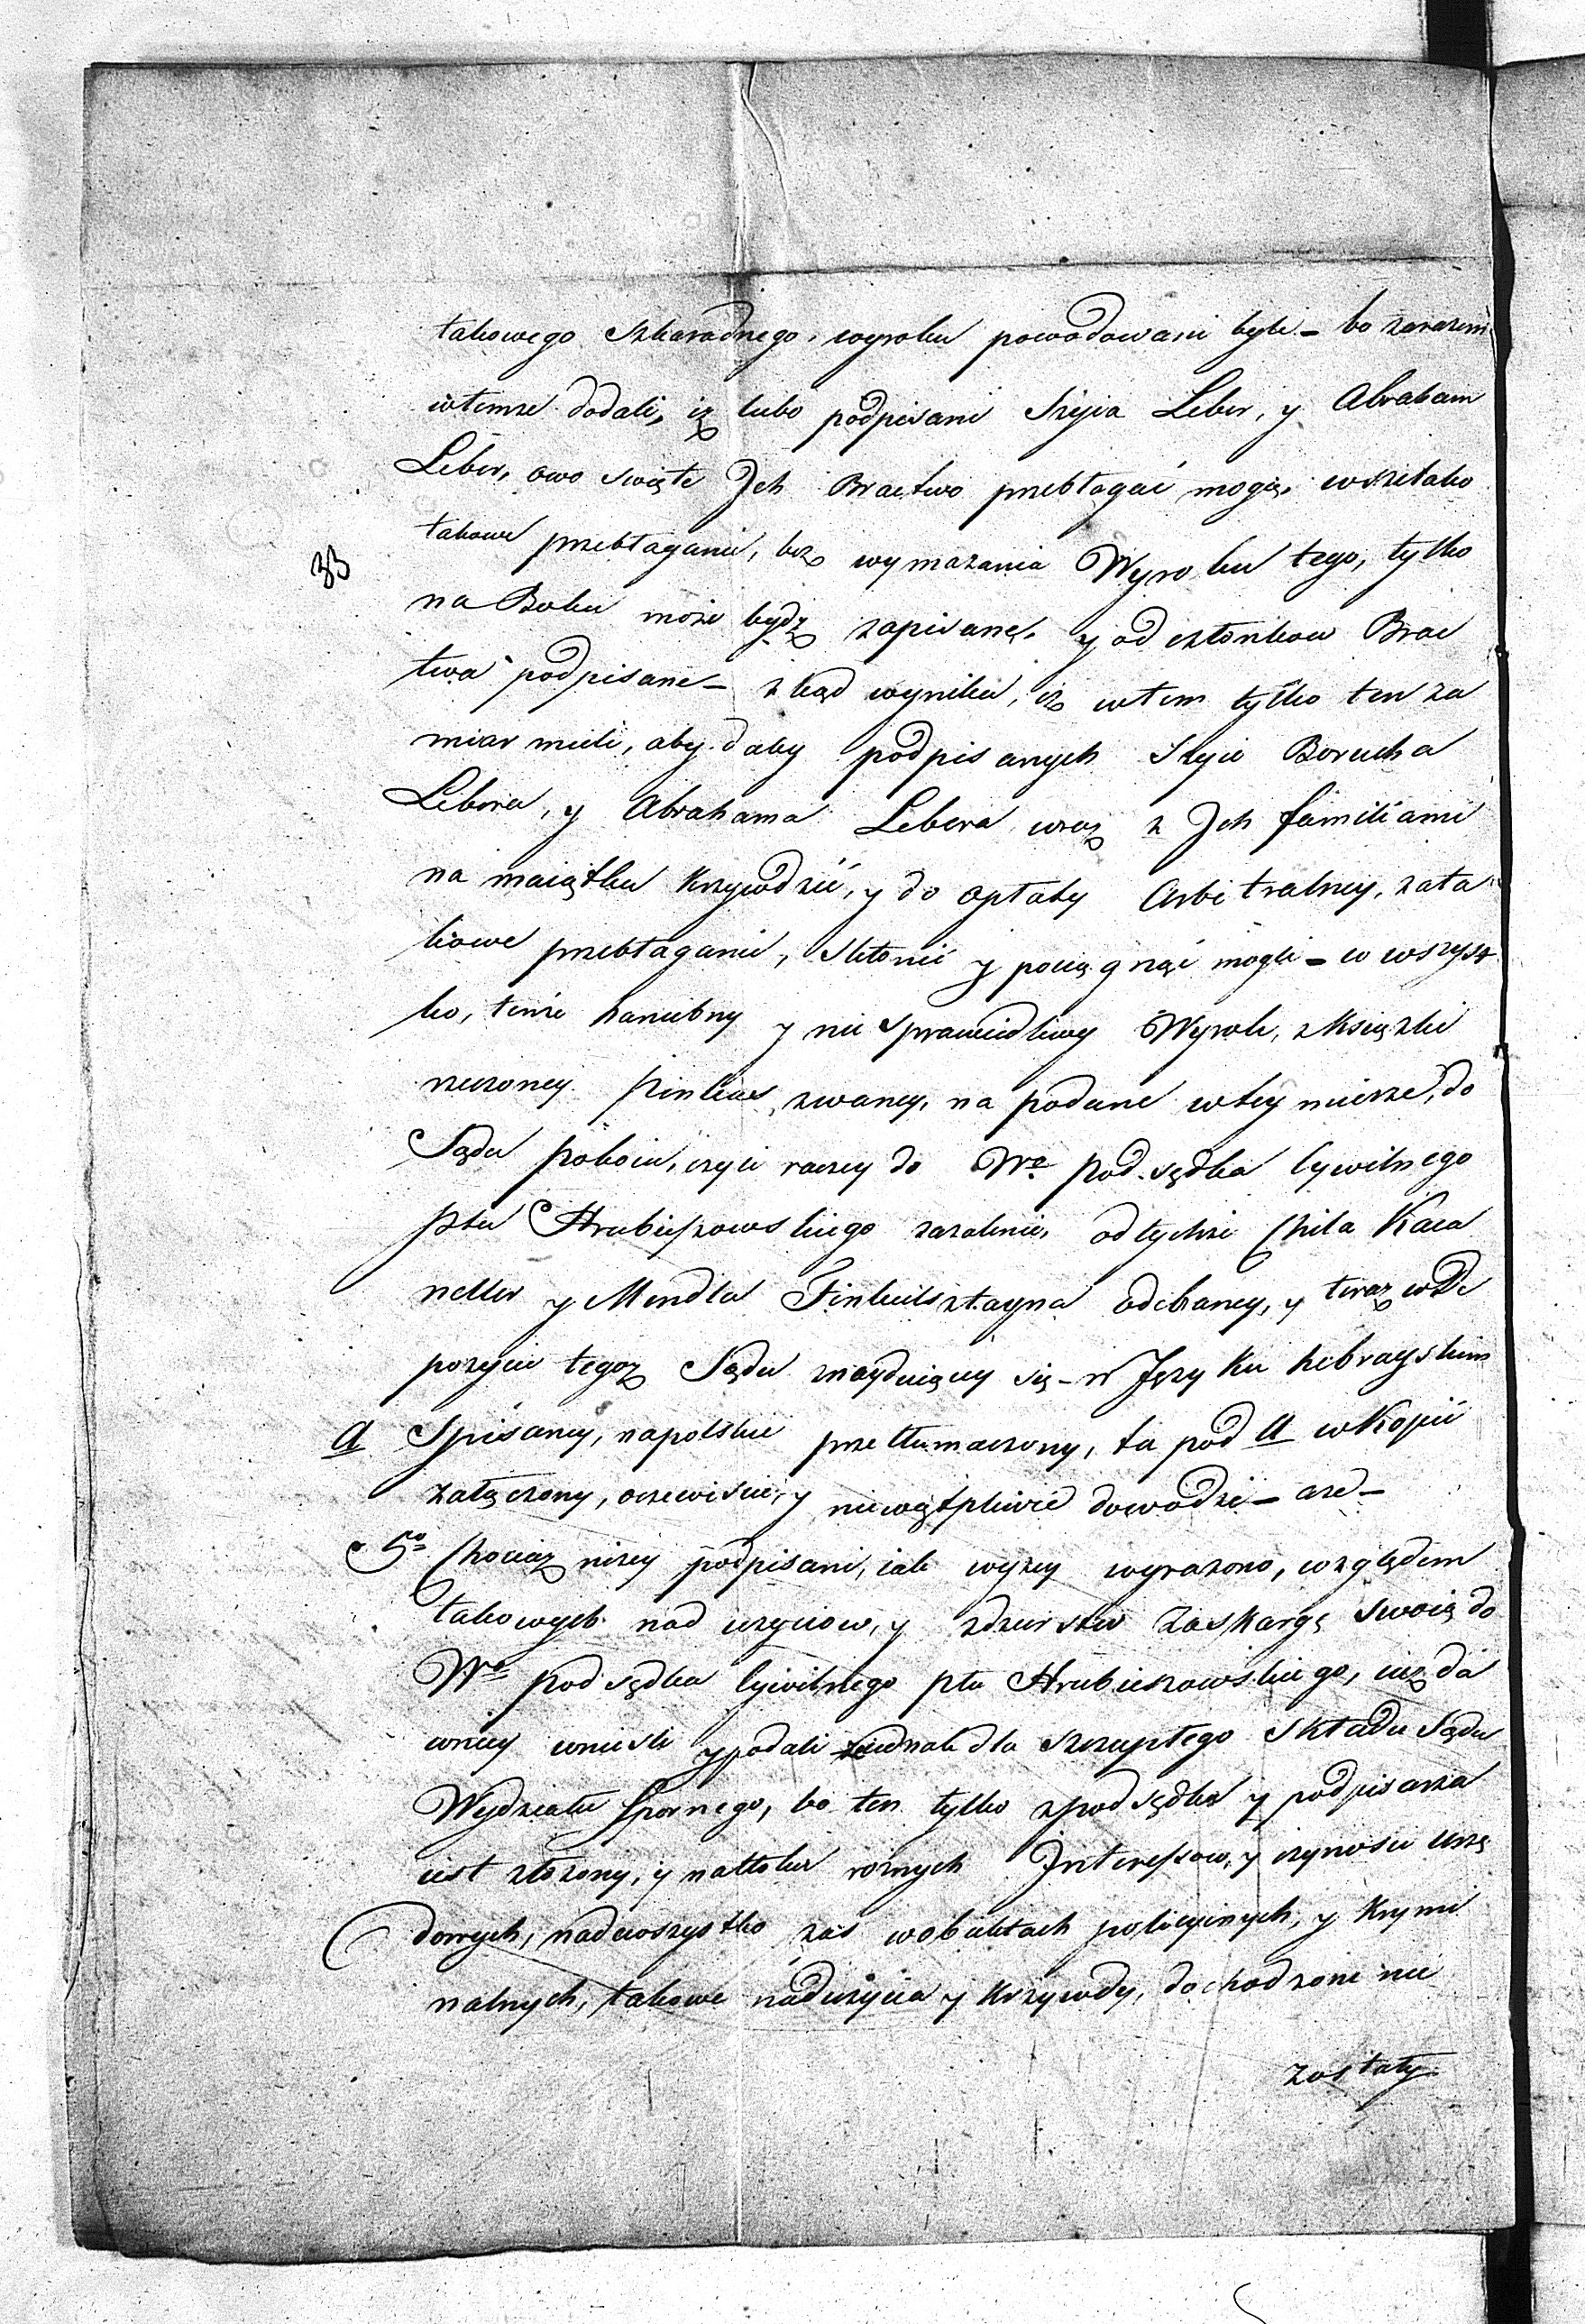 takowego szkaradnego, wyroku powodowani byli – bo zarazem
wtemze dodali, iż lubo podpisani Szyia Leber, y Abraham
Leber, owo swięte Jch Bractwo przebłagać mogą, wszelako
takowe przebłaganie, bez wymazania Wyroku tego, tylko
33
na Boku może bydź zapisane, y od członkow Brac
twa podpisane – zkąd wynika, iż wtem tylko ten za
miar mieli, aby daby podpisanych Szyie Borucha
Lebera, y Abrahama Lebera wraz z Jch familiami
na maiątku krzywdzić, y do opłaty Arbitralney, zata
kowe przebłaganie, skłonić y pociągnąć mogli – co wszyst
ko, tenże haniebny y nie sprawiedliwy Wyrok, z Książki
rzeczoney Pinkies zwaney, na podane wtey mierze, do
Sądu Pokoiu, czyli raczey do Wo Pod-sędka Cywilnego
Pttu Hrubieszowskiego zażalenie, odtychże Chila Kaca
neller y Mendla Finkielsztayna odebraney, y teraz w De
pozycie tegoż Sądu znayduiącey się – w Języku hebrayskim
A Spisaney, napolskie przetłumaczony, tu pod A w Kopii
załączony, oczewiście, y niewątpliwie dowodzi – aże –
5o Chociaż niżey podpisani, iak wyżey wyrażono, względem
takowych nad użyciow, y zdzierstw Zaskargę swoią do
Wo pod sędka Cywilnego Pttu Hrubieszowskiego, iuż da
wniey wnieśli y podali iednak dla szczupłego składu Sądu
Wydziału Spornego, bo ten tylko z podsędka y podpisarza
iest złożony, y natłoku roznych Jnteressow, y czynności Urzę
dowych, nadewszystko zaś wobiektach policyinych, y Krymi
nalnych, takowe nadużycia y krzywdy, dochodzone nie
zostały